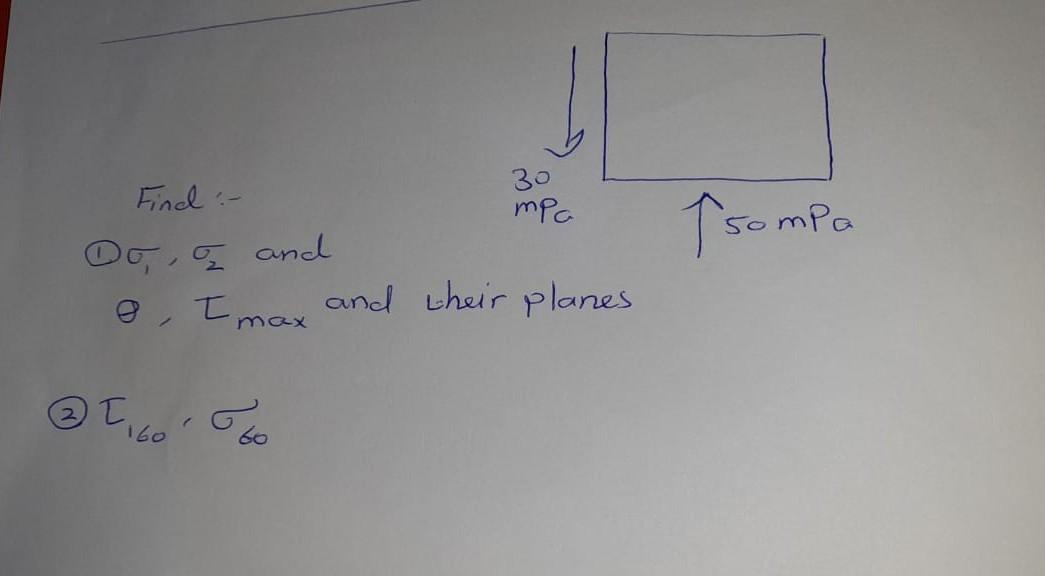 30
mPa
50 mPa
Find :-
① σ₁, σ₂ and
θ, τmax and their planes
② τ160, σ60